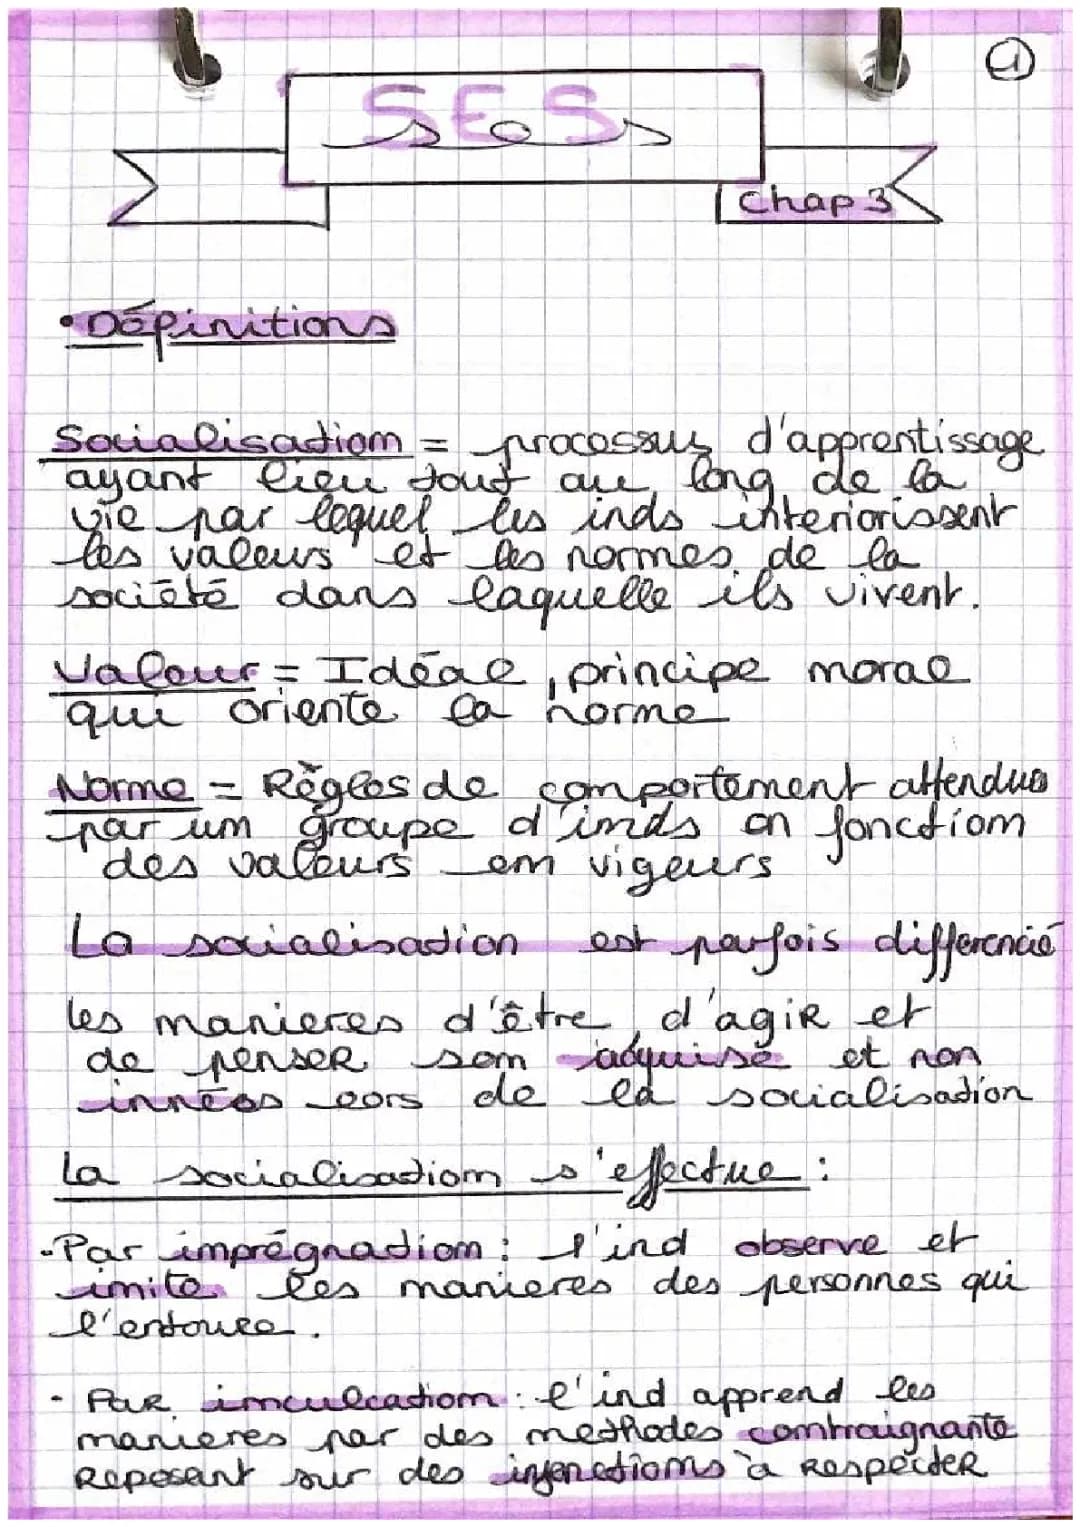 1
SES
ses
Chap 3
• Définitions
Socialisation = processus d'apprentissage
ayant lieu tout au long de la
vie par lequel les inds interiorissent
les valeurs et les normes de la
société dans laquelle ils vivent.
Valeur = Idéal, principe moral
qui oriente la norme
Norme = Règles de comportement attendues
par un groupe d'inds en fonction
des valeurs en vigeurs
La socialisation est parfois differencié
les manieres d'être, d'agir et
de penser son adquise et non
innées lors de la socialisation
La socialisation s'effectue :
- Par imprégnation : l'ind observe et
imite les manieres des personnes qui
l'entoure.
- Par inculcation : l'ind apprend les
manieres par des methodes contraignante
Reposant sur des injonctions à respecter